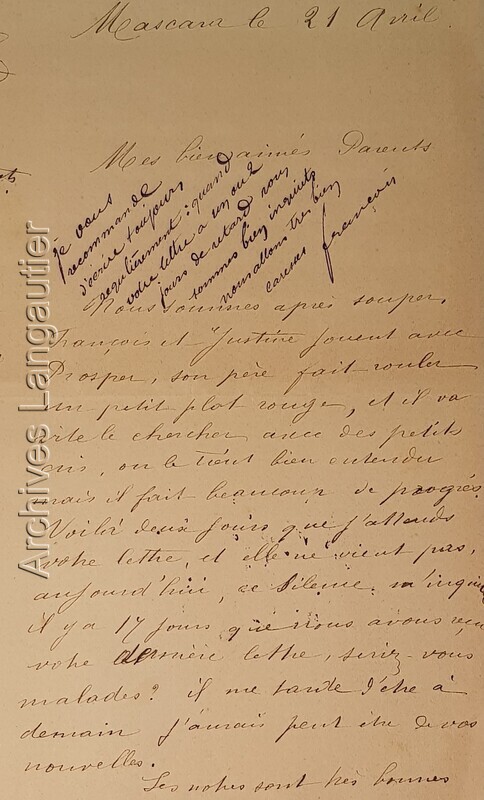 Mascara le 21 Avril
Mes bien aimés Parents
je vous
recommande
d'écrire toujours
regulièrement : quand
votre lettre a un ou 2
jours de retard nous
sommes bien inquiets
nous allons très bien
caresses
françois
Nous sommes après souper,
François et Justine jouent avec
Prosper, son père fait rouler
un petit plat rouge, et il va
vite le chercher avec des petits
cris, on le tient bien entendu
mais il fait beaucoup de progrés
Voilà deux jours que j'attends
votre lettre, et elle ne vient pas,
aujourd'hui, ce silence m'inquiè
il y a 17 jours que nous avons reçu
votre dernière lettre, seriez-vous
malades? il me tarde d'être à
demain j'aurais peut être de vos
nouvelles.
Les notres sont très bonnes
Archives Langautier